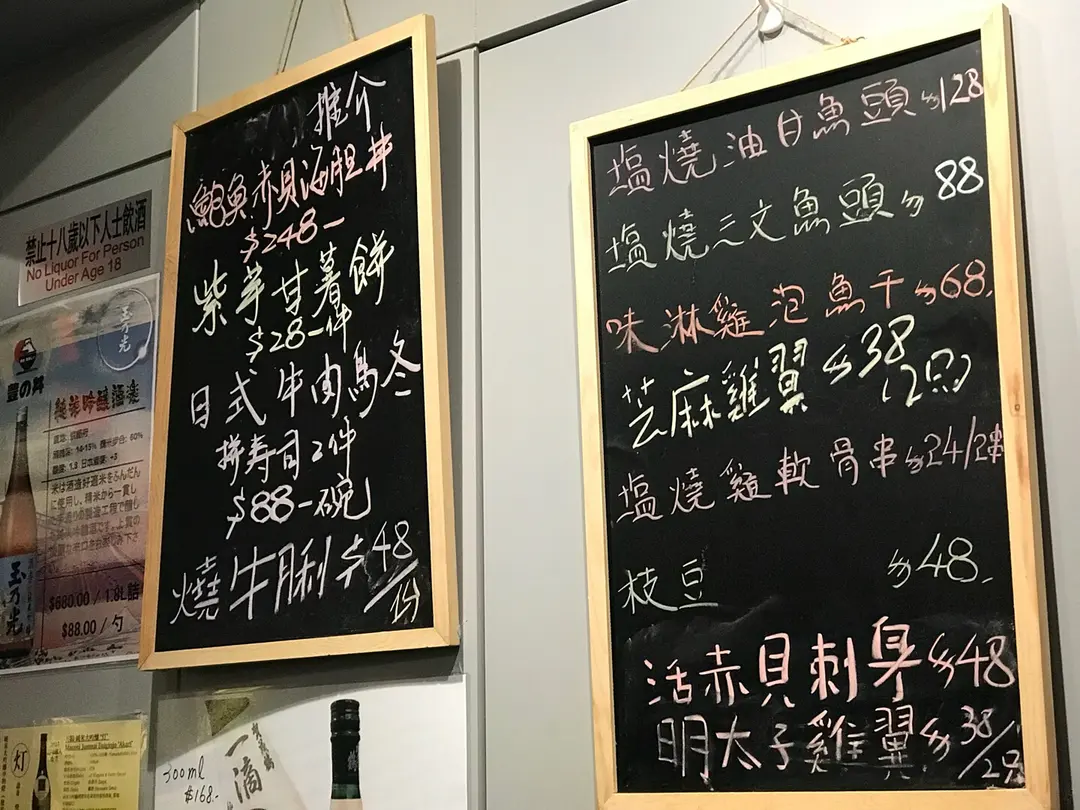 推介
鮑魚赤貝海胆丼
$248-
紫芋甘薯餅
$28-件
日式牛肉烏冬
拼寿司2件
$88-碗
燒牛脷$48
塩燒油甘魚頭$128
塩燒三文魚頭$88
味淋雞泡魚干$68.
芝麻雞翼$38
(2只)
塩燒雞軟骨串$24/2串
枝豆 $48.
活赤貝刺身$48
明太子雞翼$38
禁止十八歲以下人士飲酒
No Liquor For Person
Under Age 18
玉乃光
$680.00 / 1.8L詰
$88.00 / 勺
灯
300ml
$168-
一滴